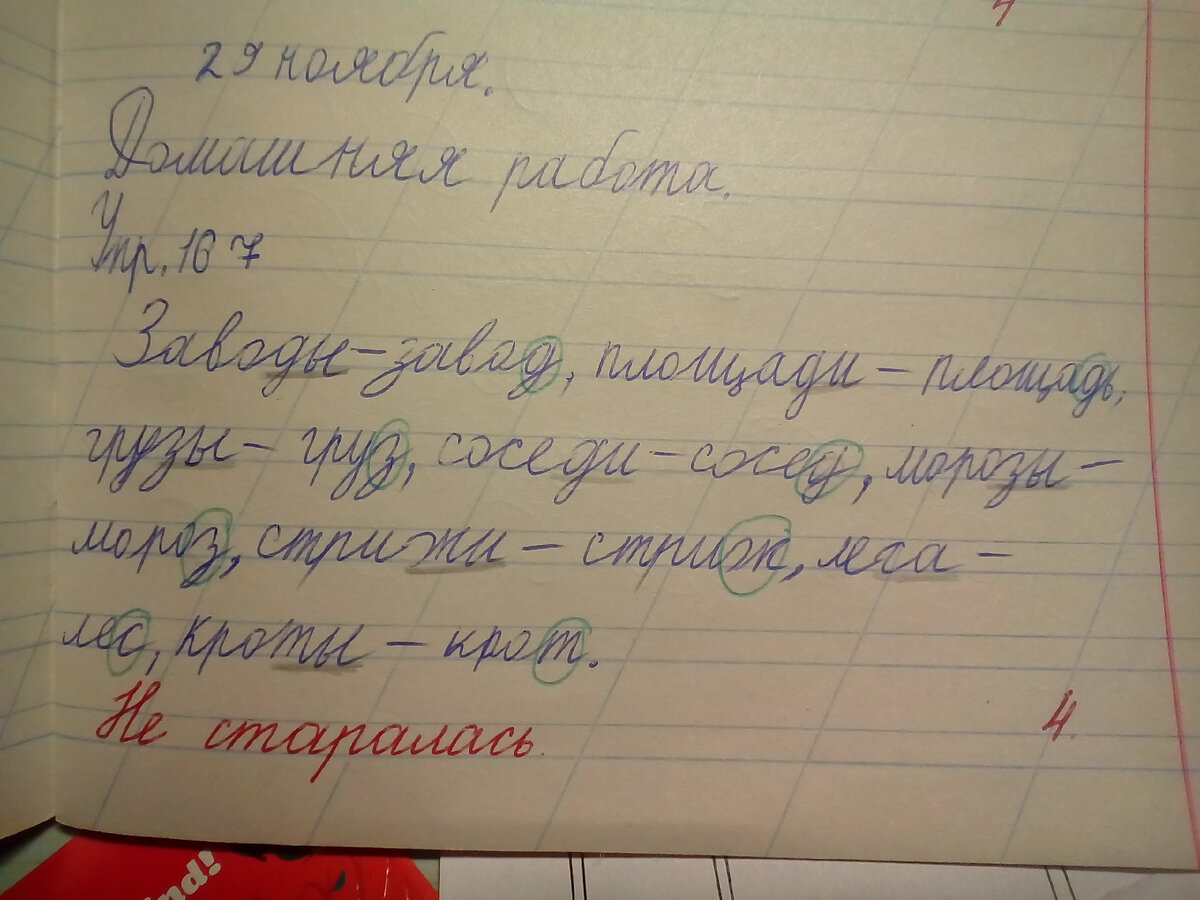 29 ноября.
Домашняя работа.
Упр. 167
Заводы – завод, площади – площадь,
грузы – груз, соседи – сосед, морозы –
мороз, стрижи – стриж, леса –
лес, кроты – крот.
Не старалась.
4.